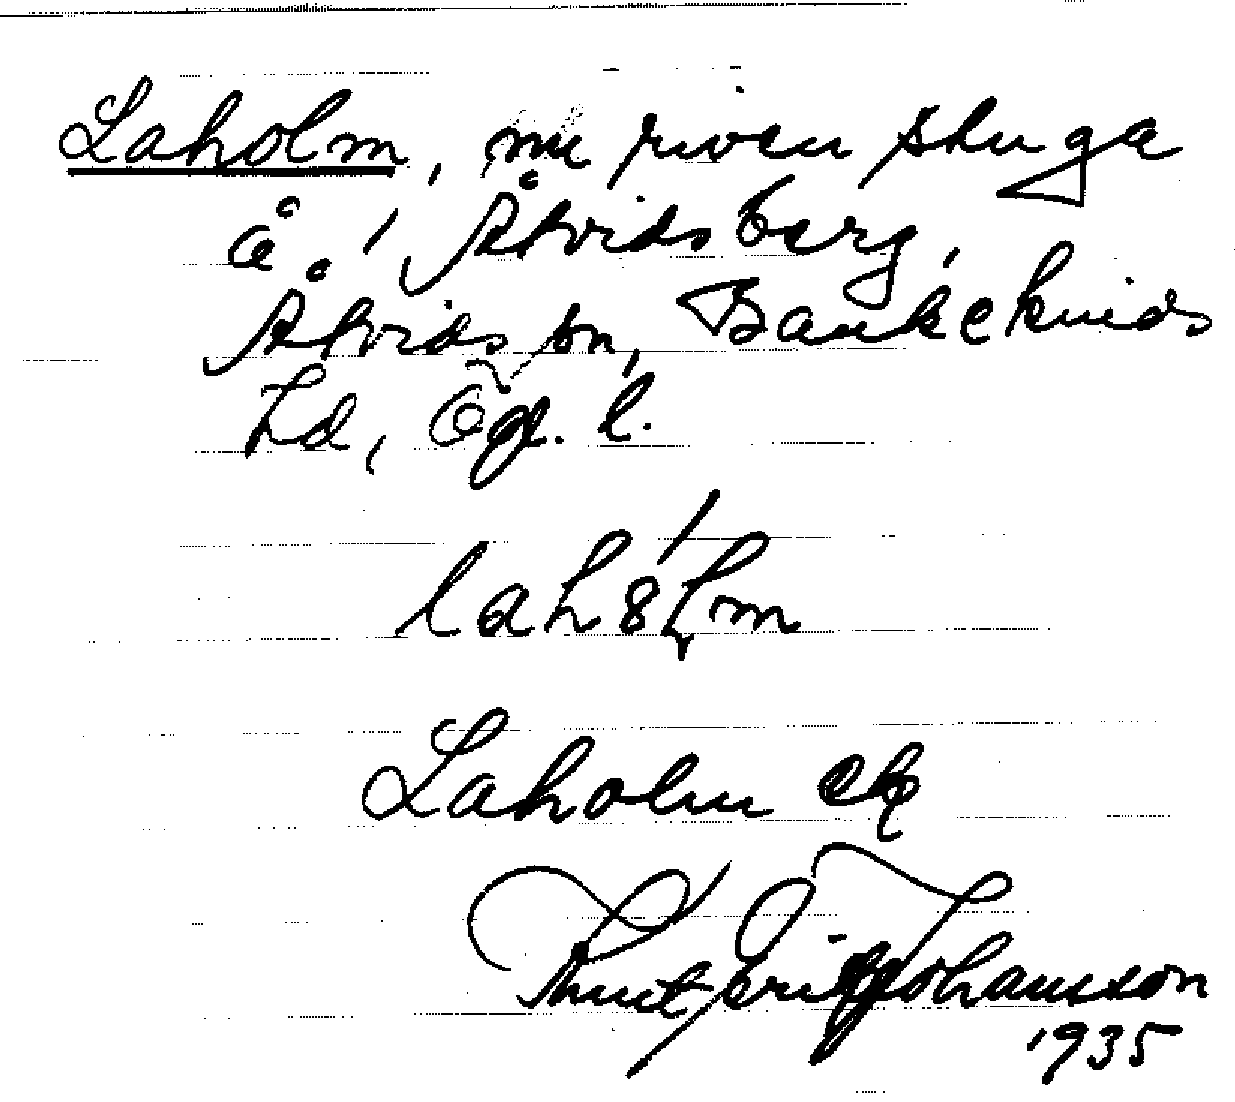 Laholm, nu riven stuga
å Åtvidsberg,
Åtvids sn, Bankekinds
hd, Ög. l.
lahólm
Laholm ek
Knut Erik Johansson
1935